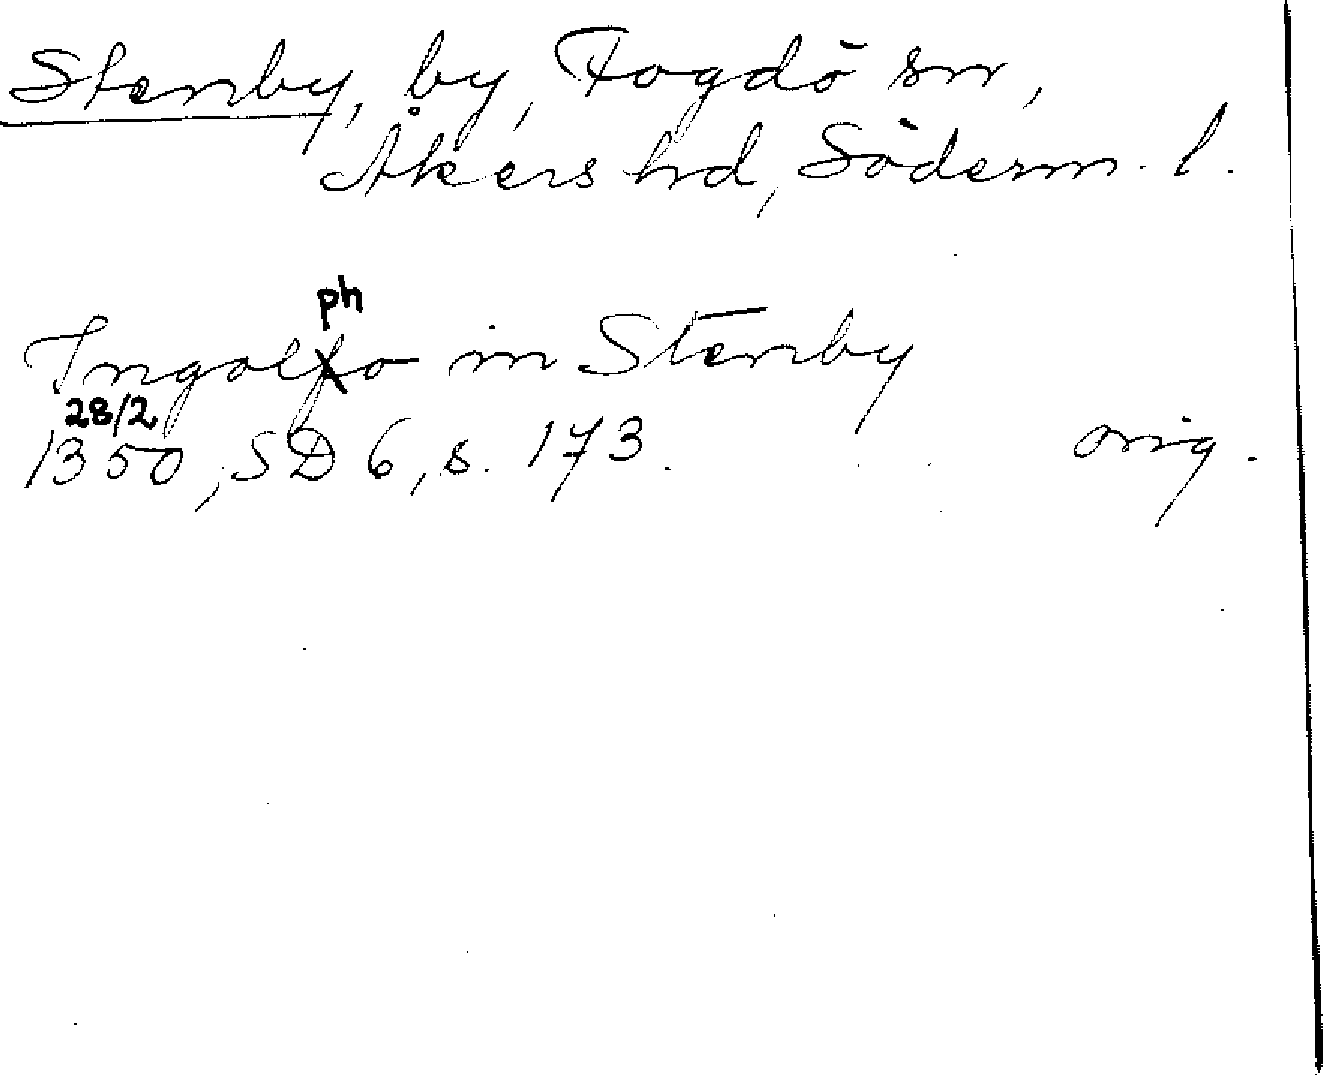 Stenby, by, Fogdö sn,
Åkers hd, Söderm. l.
ph
Ingolfo in Stenby
28/2
1350, SD 6, s. 173. orig.